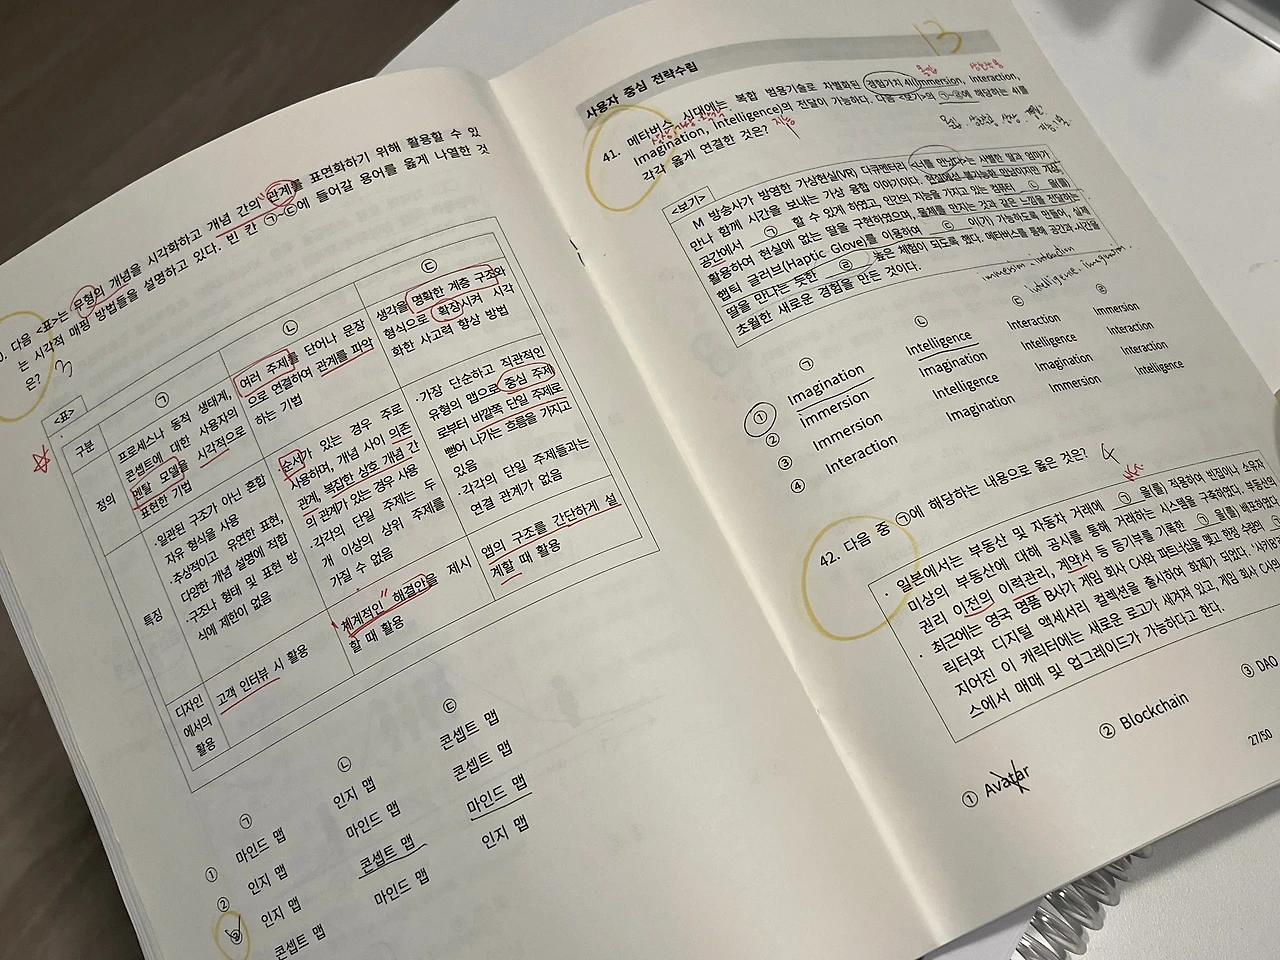 다음 <표>는 무형의 개념을 시각화하고 개념 간의 관계를 표면화하기 위해 활용할 수 있
는 시각적 매핑 방법들을 설명하고 있다. 빈 칸 ㉠~㉢에 들어갈 용어를 옳게 나열한 것
은? 3
<표>
구분 ㉠ ㉡ ㉢
정의
프로세스나 동적 생태계,
콘셉트에 대한 사용자의
멘탈 모델을 시각적으로
표현한 기법
여러 주제를 단어나 문장
으로 연결하여 관계를 파악
하는 기법
생각을 명확한 계층 구조와
형식으로 확장시켜 시각
화한 사고력 향상 방법
특징
·일관된 구조가 아닌 혼합
자유 형식을 사용
·추상적이고 유연한 표현,
다양한 개념 설명에 적합
·구조나 형태 및 표현 방
식에 제한이 없음
순서가 있는 경우 주로
사용하며, 개념 사이 의존
관계, 복잡한 상호 개념 간
의 관계가 있는 경우 사용
·각각의 단일 주제는 두
개 이상의 상위 주제를
가질 수 없음
·가장 단순하고 직관적인
유형의 맵으로 중심 주제
로부터 바깥쪽 단일 주제로
뻗어 나가는 흐름을 가지고
있음
·각각의 단일 주제들과는
연결 관계가 없음
디자인
에서의
활용
고객 인터뷰 시 활용
"체계적인" 해결안을 제시
할 때 활용
앱의 구조를 간단하게 설
계할 때 활용
㉠ ㉡ ㉢
① 마인드 맵 인지 맵 콘셉트 맵
② 인지 맵 마인드 맵 콘셉트 맵
③ 인지 맵 콘셉트 맵 마인드 맵
콘셉트 맵 마인드 맵 인지 맵
13
사용자 중심 전략수립
몰입 상호작용
41. 메타버스 시대에는 복합 범용기술로 차별화된 경험가치 4I(Immersion, Interaction,
Imagination, Intelligence)의 전달이 가능하다. 다음 <보기>의 ㉠~㉣에 해당하는 4I를
각각 옳게 연결한 것은? 지능
<보기>
M 방송사가 방영한 가상현실(VR) 다큐멘터리 <너를 만났다>는 사별한 딸과 엄마가
만나 함께 시간을 보내는 가상 융합 이야기이다. 현실에선 불가능한 만남이지만 가상
공간에서 ㉠ 할 수 있게 하였고, 인간의 지능을 가지고 있는 컴퓨터 ㉡ 을(를)
활용하여 현실에 없는 딸을 구현하였으며, 물체를 만지는 것과 같은 느낌을 전달하는
햅틱 글러브(Haptic Glove)를 이용하여 ㉢ 이(가) 가능하도록 만들어, 실제
딸을 만나는 듯한 ㉣ 높은 체험이 되도록 했다. 메타버스를 통해 공간과 시간을
초월한 새로운 경험을 만든 것이다.
immersion · interaction
intelligence ·
㉠ ㉡ ㉢ ㉣
① Imagination Intelligence Interaction Immersion
② Immersion Imagination Intelligence Interaction
③ Immersion Intelligence Imagination Interaction
④ Interaction Imagination Immersion Intelligence
42. 다음 중 ㉠에 해당하는 내용으로 옳은 것은? 4
· 일본에서는 부동산 및 자동차 거래에 ㉠ 을(를) 적용하여 빈집이나 소유자
미상의 부동산에 대해 공시를 통해 거래하는 시스템을 구축하였다. 부동산의
권리 이전의 이력관리, 계약서 등 등기부를 기록한 ㉠ 을(를) 배포하였다
· 최근에는 영국 명품 B사가 게임 회사 C사와 파트너십을 맺고 한정 수량의
릭터와 디지털 액세서리 컬렉션을 출시하여 화제가 되었다.
지어진 이 캐릭터에는 새로운 로고가 새겨져 있고, 게임 회사 C사의
스에서 매매 및 업그레이드가 가능하다고 한다.
① Avatar ② Blockchain ③ DAO
27/50